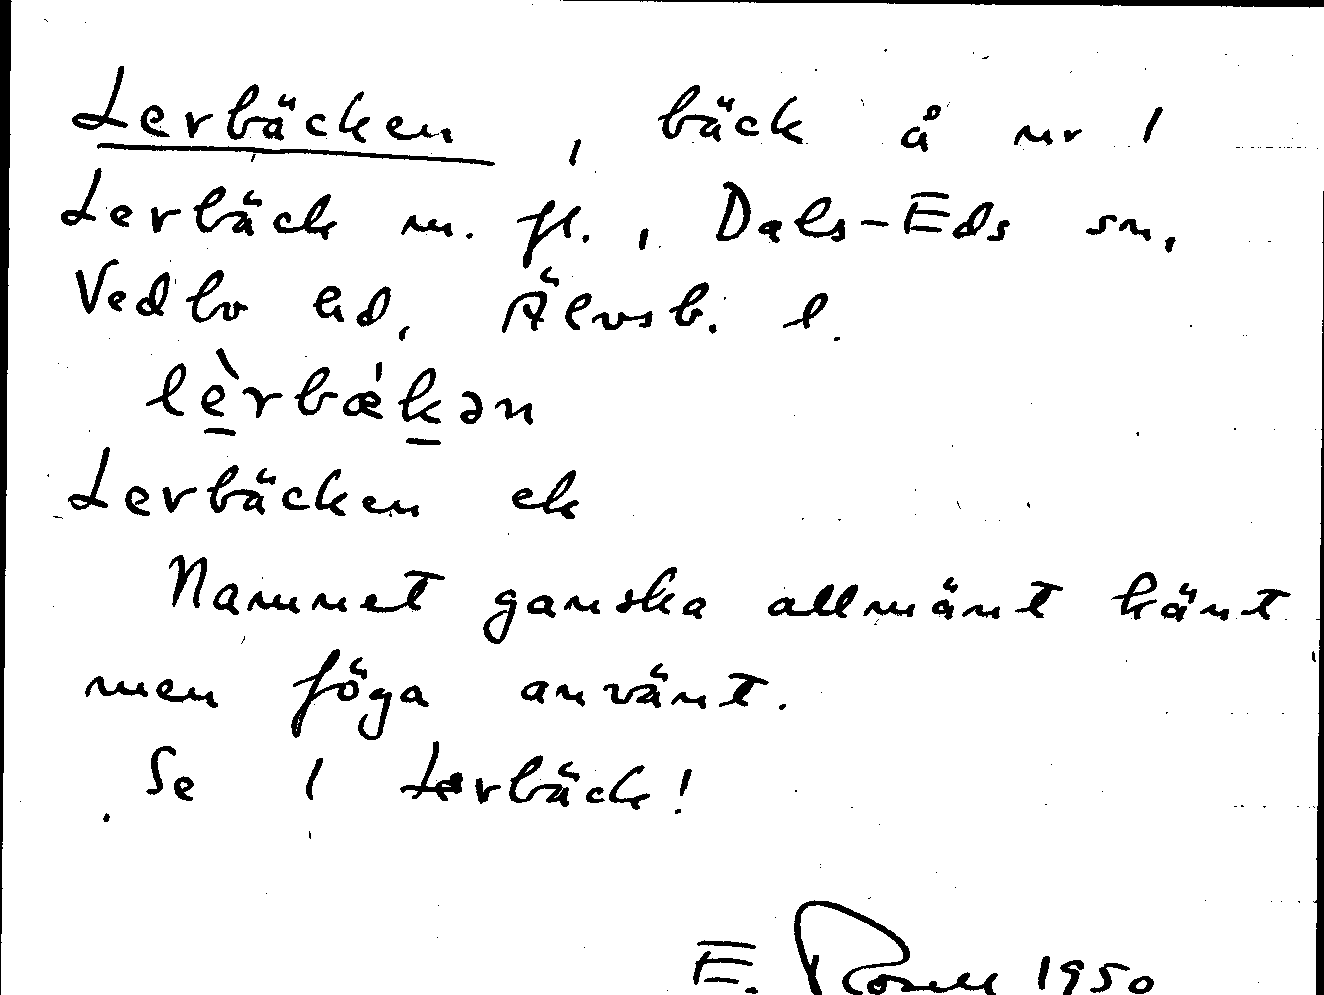 Lerbäcken, bäck å nr 1
Lerbäck m. fl., Dals-Eds sn,
Vedbo hd, Älvsb. l.
lèrbæ̍kən
Lerbäcken ek
Namnet ganska allmänt känt
men föga använt.
Se 1 Lerbäck!
E. Rosell 1950